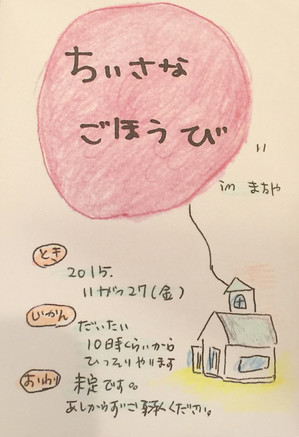 ちいさな
ごほうび
in まちや
とき
2015.
11がつ27(金)
じかん
だいたい
10時くらいから
ひっそりやります
おわり
未定です。
あしからずご了承ください。